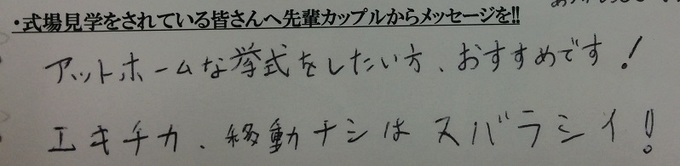 ・式場見学をされている皆さんへ先輩カップルからメッセージを!!
アットホームな挙式をしたい方、おすすめです!
エキチカ、移動ナシはスバラシイ!!。